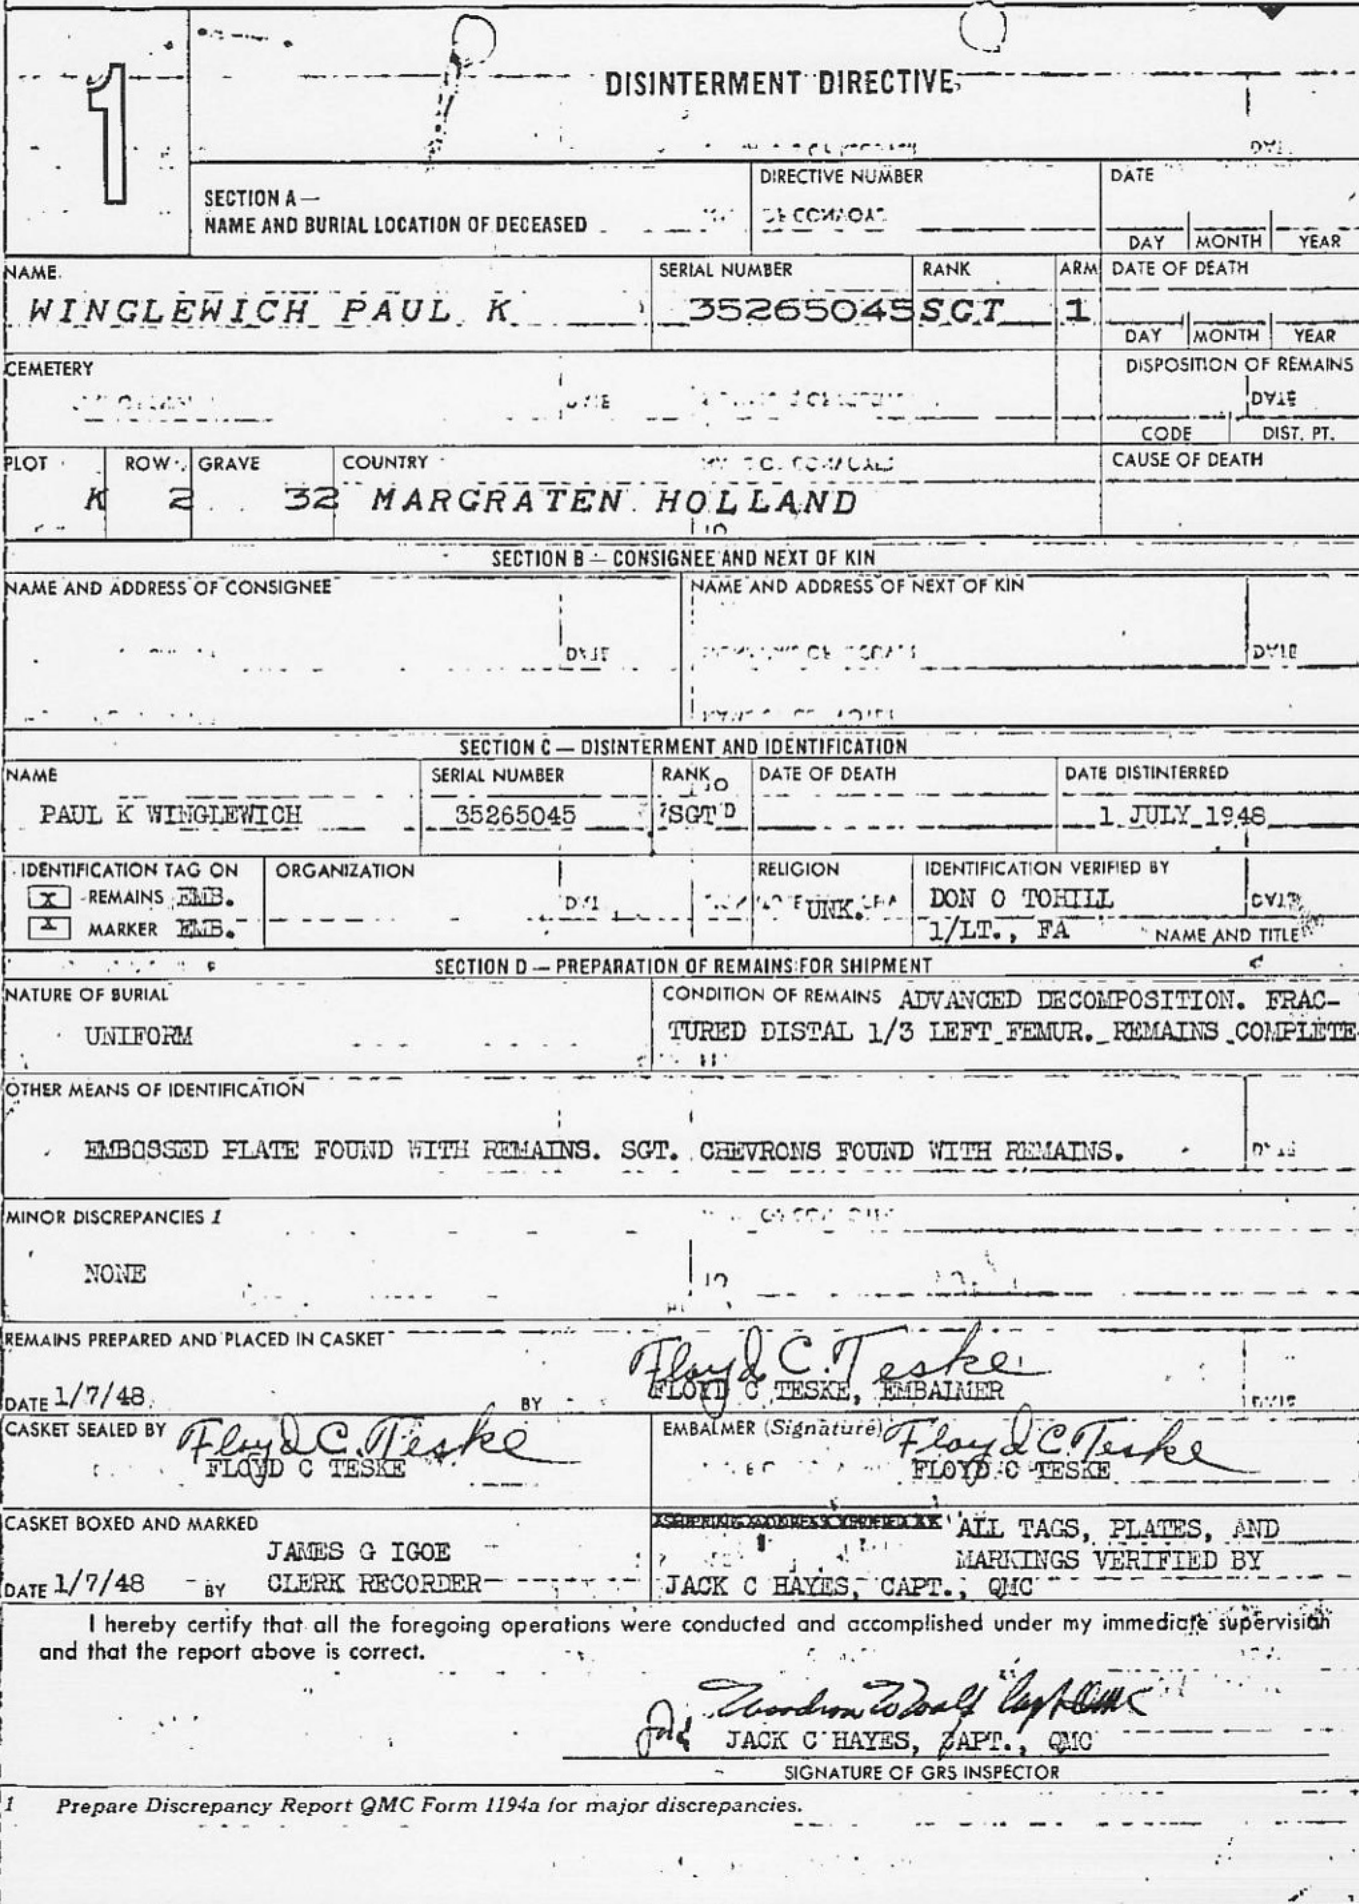 1
DISINTERMENT DIRECTIVE
SECTION A —
NAME AND BURIAL LOCATION OF DECEASED
DIRECTIVE NUMBER
DATE
DAY MONTH YEAR
NAME
WINGLEWICH PAUL K
SERIAL NUMBER
35265045
RANK
SGT
ARM
1
DATE OF DEATH
DAY MONTH YEAR
CEMETERY
DISPOSITION OF REMAINS
CODE DIST. PT.
PLOT
K
ROW
2
GRAVE
32
COUNTRY
MARGRATEN HOLLAND
CAUSE OF DEATH
SECTION B — CONSIGNEE AND NEXT OF KIN
NAME AND ADDRESS OF CONSIGNEE
NAME AND ADDRESS OF NEXT OF KIN
SECTION C — DISINTERMENT AND IDENTIFICATION
NAME
PAUL K WINGLEWICH
SERIAL NUMBER
35265045
RANK
SGT
DATE OF DEATH
DATE DISTINTERRED
1 JULY 1948
IDENTIFICATION TAG ON
X REMAINS EMB.
X MARKER EMB.
ORGANIZATION
RELIGION
UNK.
IDENTIFICATION VERIFIED BY
DON O TOHILL
1/LT., FA NAME AND TITLE
SECTION D — PREPARATION OF REMAINS FOR SHIPMENT
NATURE OF BURIAL
UNIFORM
CONDITION OF REMAINS ADVANCED DECOMPOSITION. FRAC-
TURED DISTAL 1/3 LEFT FEMUR. REMAINS COMPLETE
OTHER MEANS OF IDENTIFICATION
EMBOSSED PLATE FOUND WITH REMAINS. SGT. CHEVRONS FOUND WITH REMAINS.
MINOR DISCREPANCIES 1
NONE
REMAINS PREPARED AND PLACED IN CASKET
Floyd C. Teske
DATE 1/7/48 BY FLOYD C TESKE, EMBALMER
CASKET SEALED BY Floyd C. Teske
FLOYD C TESKE
EMBALMER (Signature) Floyd C Teske
FLOYD C TESKE
CASKET BOXED AND MARKED
JAMES G IGOE
DATE 1/7/48 BY CLERK RECORDER
ALL TAGS, PLATES, AND
MARKINGS VERIFIED BY
JACK C HAYES, CAPT., QMC
I hereby certify that all the foregoing operations were conducted and accomplished under my immediate supervision
and that the report above is correct.
JACK C HAYES, CAPT., QMC
SIGNATURE OF GRS INSPECTOR
1 Prepare Discrepancy Report QMC Form 1194a for major discrepancies.